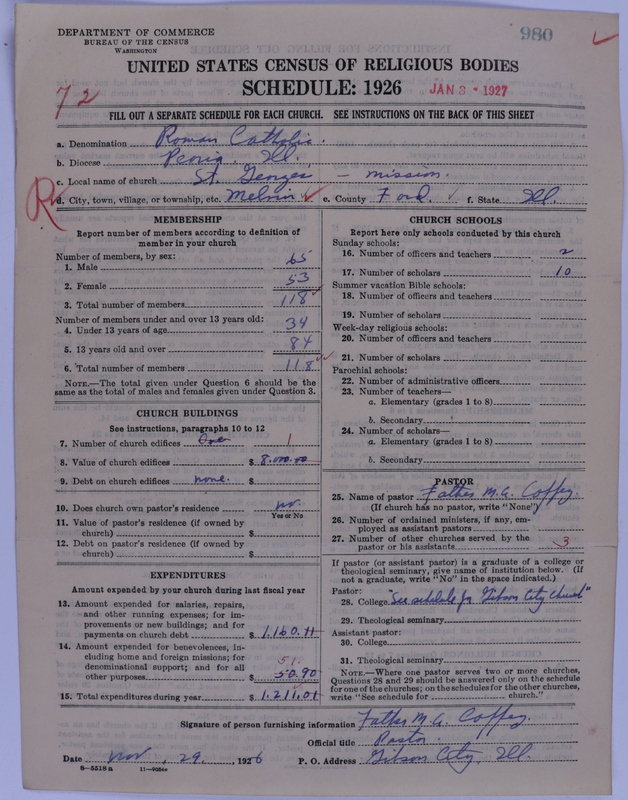 DEPARTMENT OF COMMERCE
BUREAU OF THE CENSUS
WASHINGTON
980
UNITED STATES CENSUS OF RELIGIOUS BODIES
SCHEDULE: 1926
JAN 3 - 1927
72
FILL OUT A SEPARATE SCHEDULE FOR EACH CHURCH. SEE INSTRUCTIONS ON THE BACK OF THIS SHEET
a. Denomination Roman Catholic.
b. Diocese Peoria, Ill.
c. Local name of church St. Georges - mission.
d. City, town, village, or township, etc. Melvin e. County Ford. f. State Ill.
R
MEMBERSHIP
Report number of members according to definition of
member in your church
Number of members, by sex:
1. Male 65
2. Female 53
3. Total number of members 118
Number of members under and over 13 years old:
4. Under 13 years of age 34
5. 13 years old and over 84
6. Total number of members 118
NOTE.—The total given under Question 6 should be
same as the total of males and females given under Question 3.
CHURCH BUILDINGS
See instructions, paragraphs 10 to 12
7. Number of church edifices One 1
8. Value of church edifices $ 8,000.00
9. Debt on church edifices none. $
10. Does church own pastor's residence no.
Yes or No
11. Value of pastor's residence (if owned by
church) $
12. Debt on pastor's residence (if owned by
church) $
EXPENDITURES
Amount expended by your church during last fiscal year
13. Amount expended for salaries, repairs,
and other running expenses; for im-
provements or new buildings; and for
payments on church debt $ 1,160.11
14. Amount expended for benevolences, in-
cluding home and foreign missions; for
denominational support; and for all 51.
other purposes $ 50.90
15. Total expenditures during year $ 1,211.01
CHURCH SCHOOLS
Report here only schools conducted by this church
Sunday schools:
16. Number of officers and teachers 2
17. Number of scholars 10
Summer vacation Bible schools:
18. Number of officers and teachers
19. Number of scholars
Week-day religious schools:
20. Number of officers and teachers
21. Number of scholars
Parochial schools:
22. Number of administrative officers
23. Number of teachers—
a. Elementary (grades 1 to 8)
b. Secondary
24. Number of scholars—
a. Elementary (grades 1 to 8)
b. Secondary
PASTOR
25. Name of pastor Father M.A. Coffey.
(If church has no pastor, write "None")
26. Number of ordained ministers, if any, em-
ployed as assistant pastors
27. Number of other churches served by the
pastor or his assistants 3
If pastor (or assistant pastor) is a graduate of a college or
theological seminary, give name of institution below. (If
not a graduate, write "No" in the space indicated.)
Pastor:
28. College "See schedule for Gibson City Church"
29. Theological seminary
Assistant pastor:
30. College
31. Theological seminary
NOTE.—Where one pastor serves two or more churches,
Questions 28 and 29 should be answered only on the schedule
for one of the churches; on the schedules for the other churches,
write "See schedule for ______ church."
Signature of person furnishing information Father M.A. Coffey.
Official title Pastor.
Date Nov. 29. 1926 P. O. Address Gibson City, Ill.
8—5518a 11—9054a